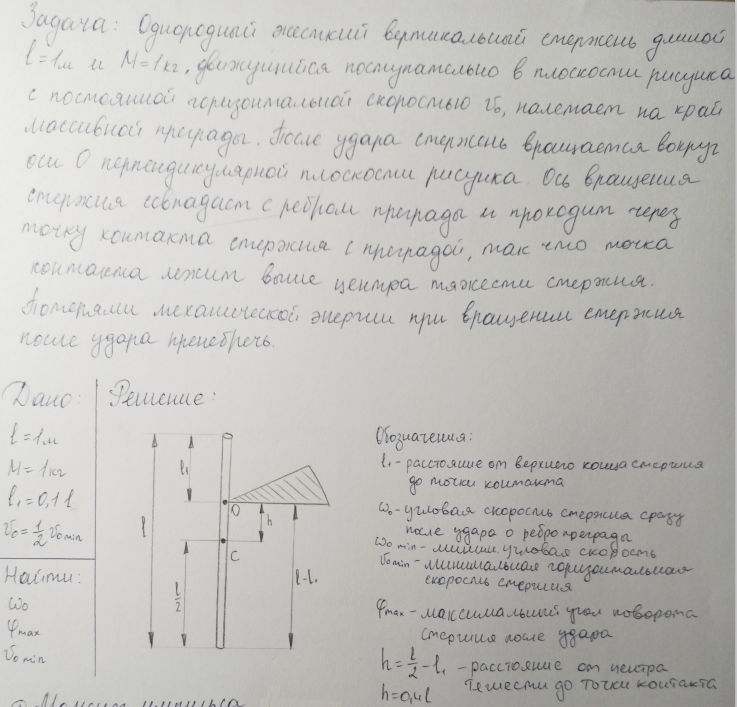 Задача: Однородный жесткий вертикальный стержень длиной
l=1м и M=1кг, движущийся поступательно в плоскости рисунка
с постоянной горизонтальной скоростью v₀, налетает на край
массивной преграды. После удара стержень вращается вокруг
оси О перпендикулярной плоскости рисунка. Ось вращения
стержня совпадает с ребром преграды и проходит через
точку контакта стержня с преградой, так что точка
контакта лежит выше центра тяжести стержня.
Потерями механической энергии при вращении стержня
после удара пренебречь.
Дано:
l=1м
M=1кг
l₁=0,1l
v₀=½v₀ min
Найти:
ω₀
φmax
v₀ min
Решение:
l
l₁
O
h
C
l/2
l-l₁
Обозначения:
l₁ - расстояние от верхнего конца стержня
до точки контакта
ω₀ - угловая скорость стержня сразу
после удара о ребро преграды
ω₀ min - миним. угловая скорость
v₀ min - минимальная горизонтальная
скорость стержня
φmax - максимальный угол поворота
стержня после удара
h = l/2 - l₁ - расстояние от центра
тяжести до точки контакта
h=0,4l
Момент импульса